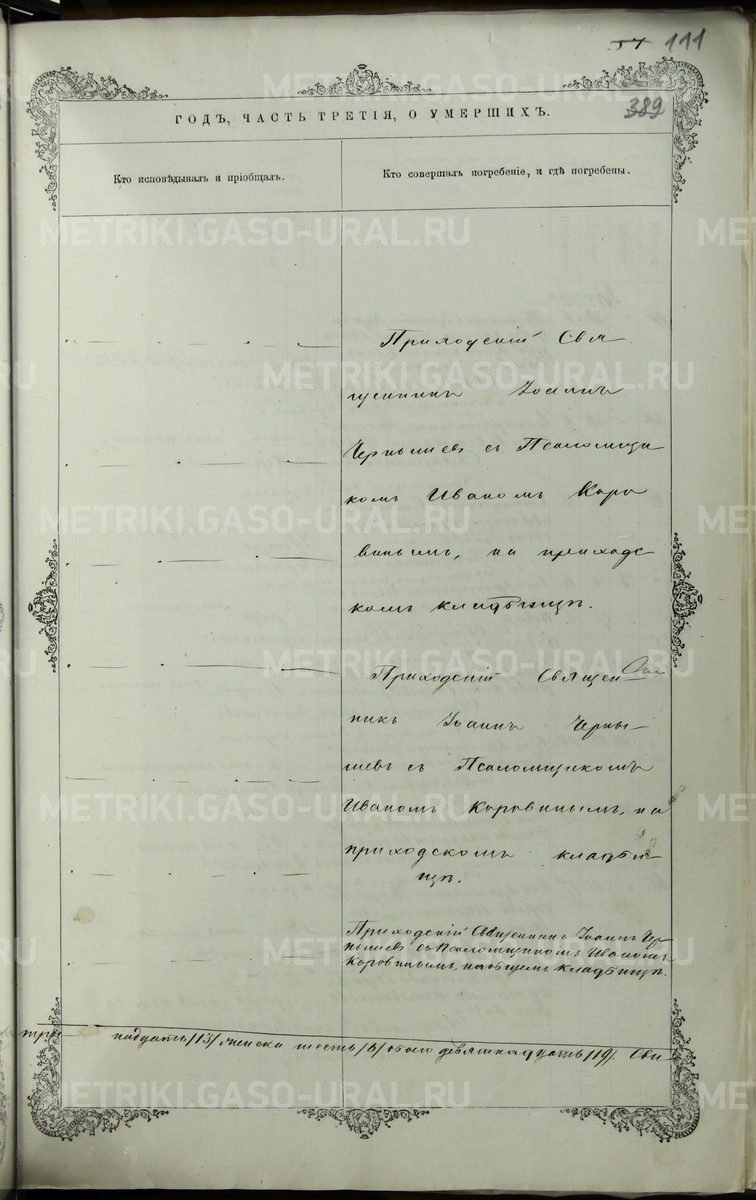 57 111
389
ГОДЪ, ЧАСТЬ ТРЕТІЯ, О УМЕРШИХЪ.
Кто исповѣдывалъ и пріобщалъ.
Кто совершалъ погребеніе, и гдѣ погребены.
Приходскій Свя
щенникъ Іоаннъ
Чернышевъ съ Псаломщи
комъ Иваномъ Коро
винымъ, на приходс
комъ кладбищѣ.
Приходскій Священ
никъ Іоаннъ Черны-
шевъ съ Псаломщикомъ
Иваномъ Коровинымъ, на
приходскомъ кладби
щѣ.
Приходскій Священникъ Іоаннъ Чер-
нышевъ съ Псаломщикомъ Иваномъ
Коровинымъ, на общемъ кладбищѣ.
три надцать /13/ женска шесть /6/ обоего девятнадцать /19/. Сви
METRIKI.GASO-URAL.RU